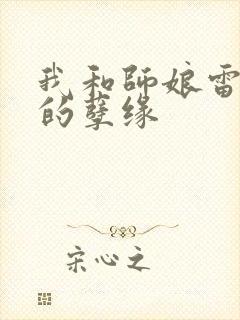 我和師娘雷
的孽缘
宋心之